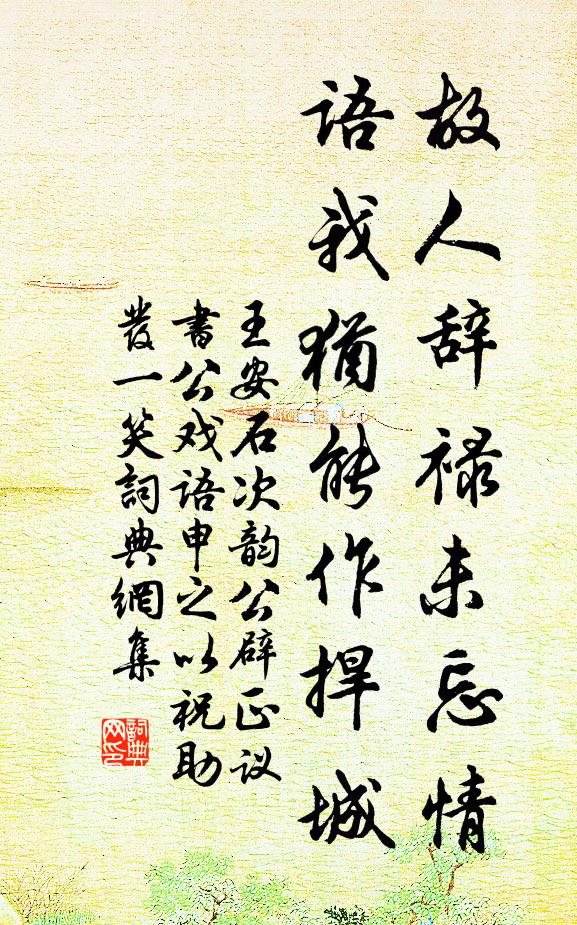 故人辞禄未忘情
语我犹能作捍城
王安石次韵公辟正议
書公戏语申之以祝助
發一笑詞典網集
詞典
网印